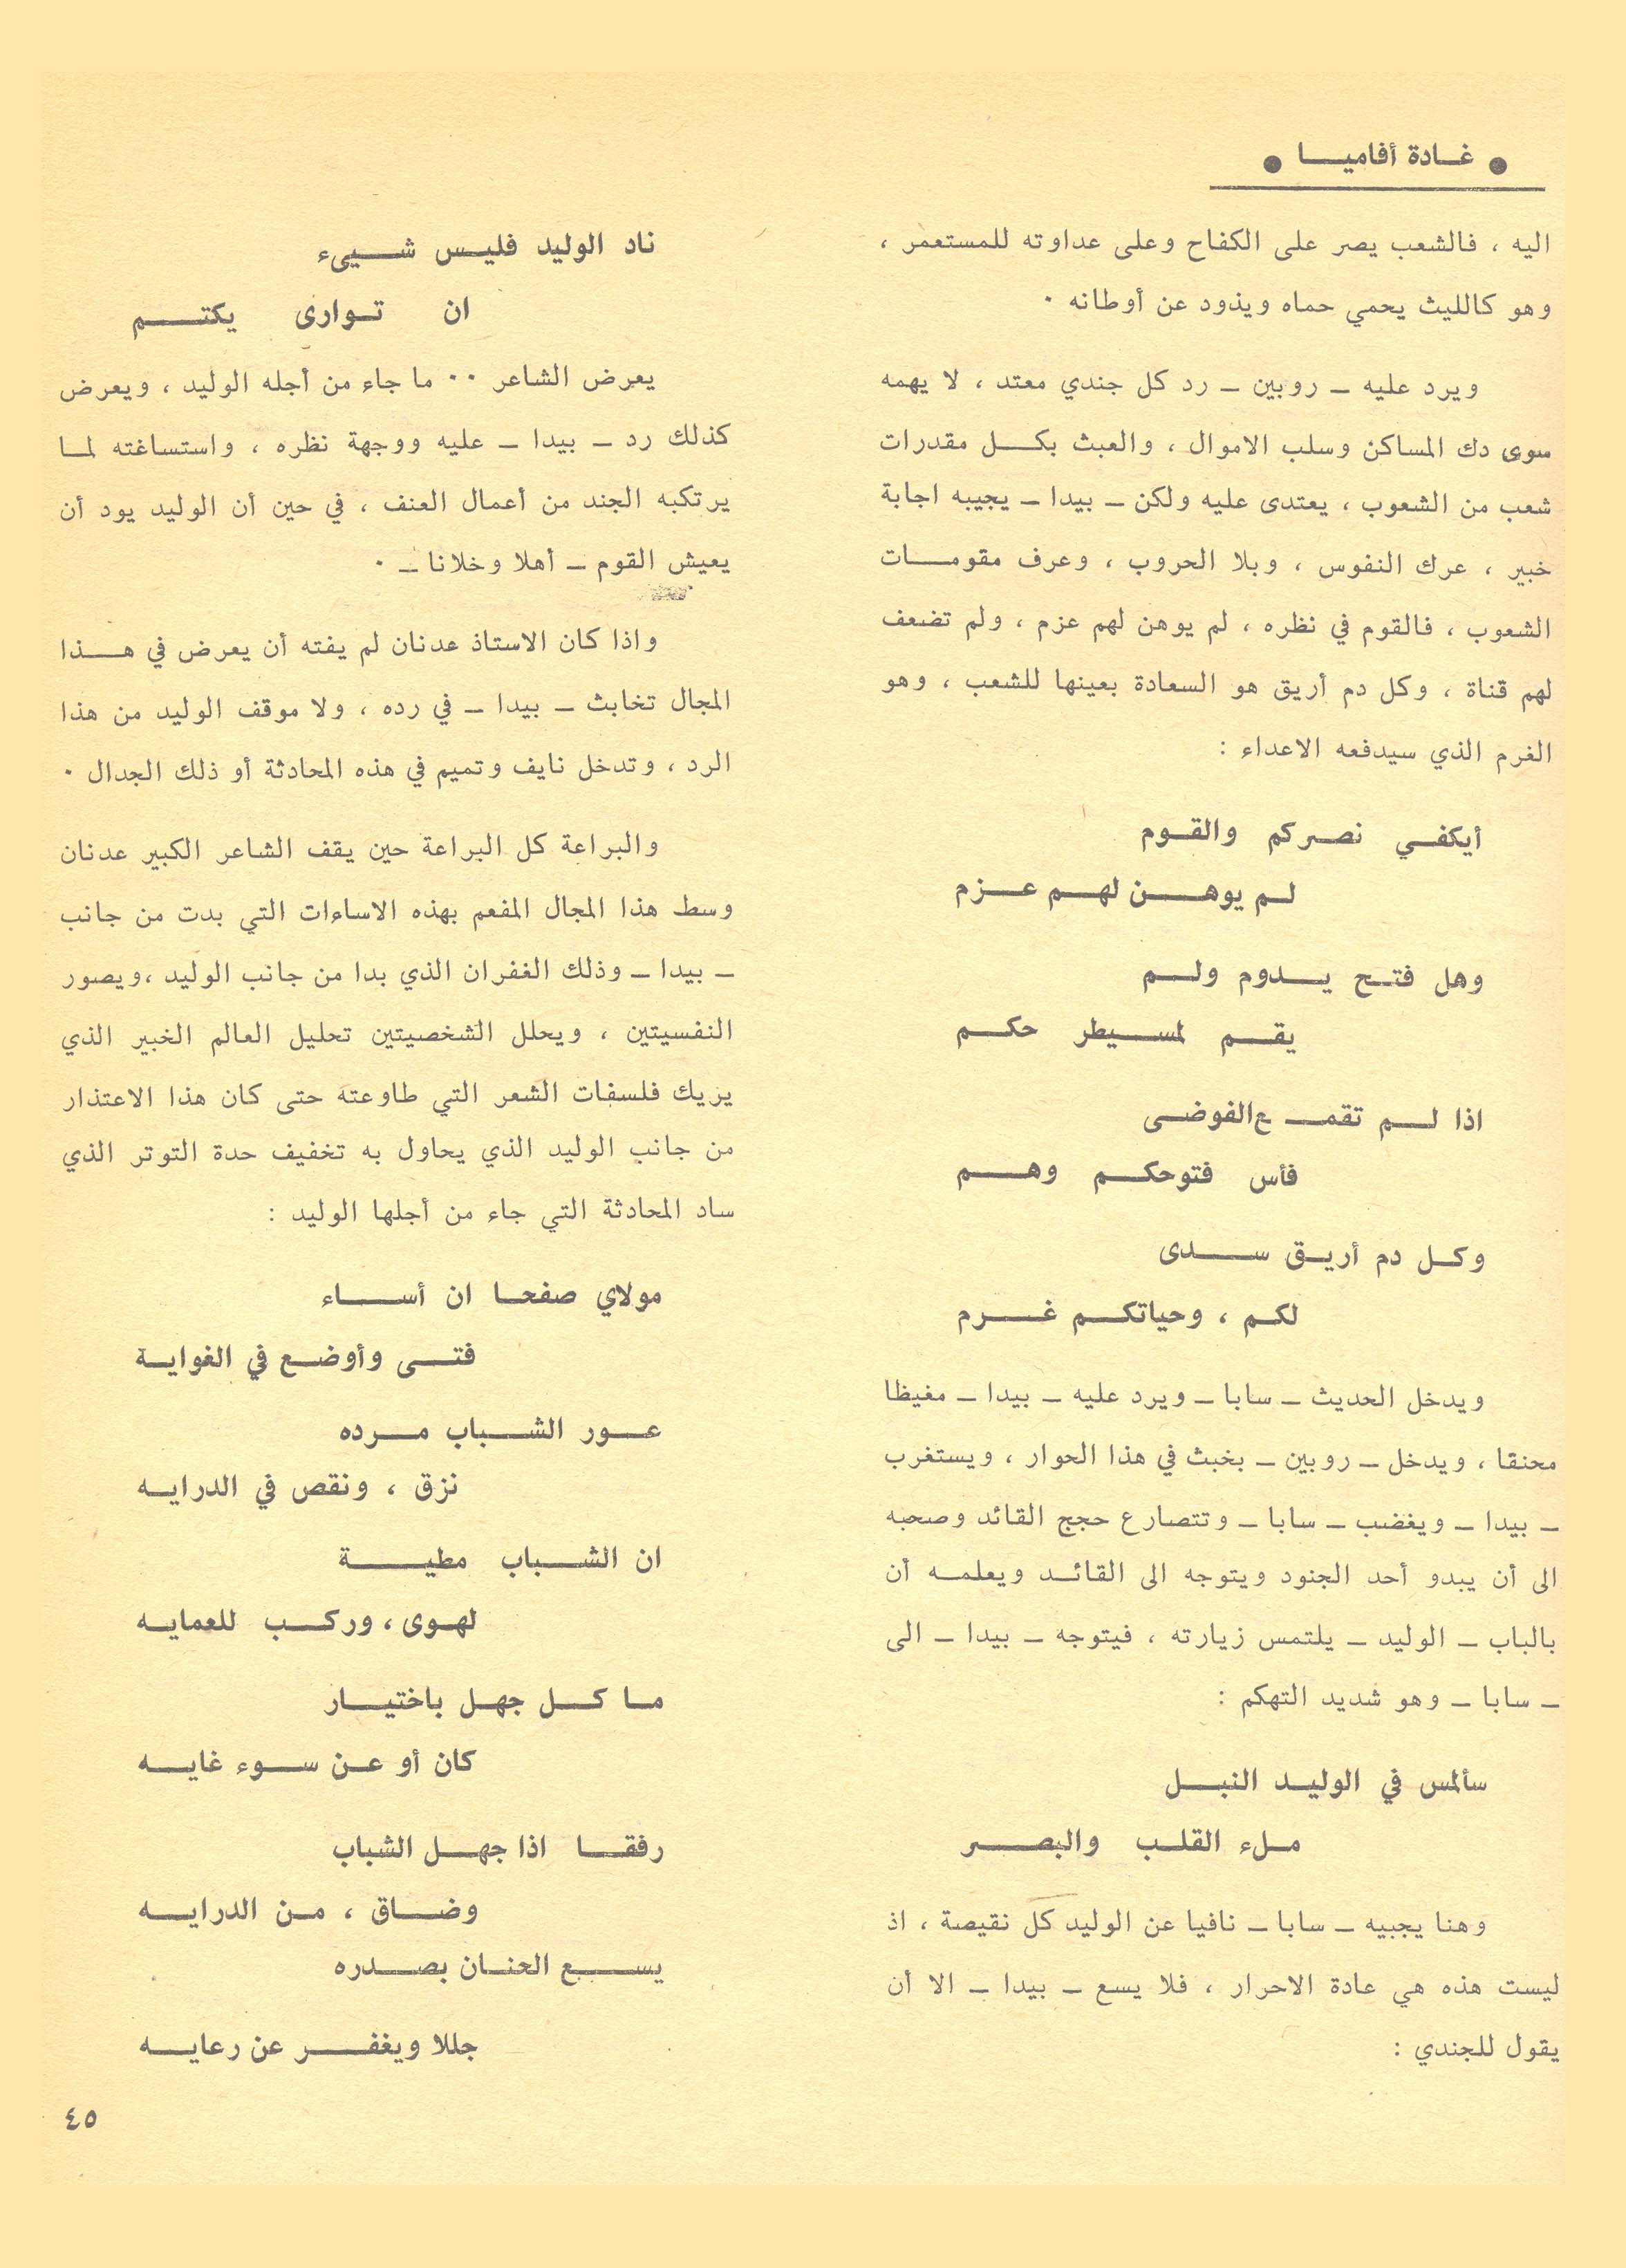 ● غادة أفاميا ●
اليه ، فالشعب يصر على الكفاح وعلى عداوته للمستعمر ،
وهو كالليث يحمي حماه ويذود عن أوطانه ٠
ويرد عليه ـ روبين ـ رد كل جندي معتد ، لا يهمه
سوى دك المساكن وسلب الاموال ، والعبث بكل مقدرات
شعب من الشعوب ، يعتدى عليه ولكن ـ بيدا ـ يجيبه اجابة
خبير ، عرك النفوس ، وبلا الحروب ، وعرف مقومات
الشعوب ، فالقوم في نظره ، لم يوهن لهم عزم ، ولم تضعف
لهم قناة ، وكل دم أريق هو السعادة بعينها للشعب ، وهو
الغرم الذي سيدفعه الاعداء :
أيكفي نصركم والقوم
لم يوهن لهم عزم
وهل فتح يدوم ولم
يقم لمسيطر حكم
اذا لم تقمع الفوضى
فأس فتوحكم وهم
وكل دم أريق سدى
لكم ، وحياتكم غرم
ويدخل الحديث ـ سابا ـ ويرد عليه ـ بيدا ـ مغيظا
محنقا ، ويدخل ـ روبين ـ بخبث في هذا الحوار ، ويستغرب
ـ بيدا ـ ويغضب ـ سابا ـ وتتصارع حجج القائد وصحبه
الى أن يبدو أحد الجنود ويتوجه الى القائد ويعلمه أن
بالباب ـ الوليد ـ يلتمس زيارته ، فيتوجه ـ بيدا ـ الى
ـ سابا ـ وهو شديد التهكم :
سألمس في الوليد النبل
ملء القلب والبصر
وهنا يجبيه ـ سابا ـ نافيا عن الوليد كل نقيصة ، اذ
ليست هذه هي عادة الاحرار ، فلا يسع ـ بيدا ـ الا أن
يقول للجندي :
ناد الوليد فليس شيىء
ان توارى يكتم
يعرض الشاعر ٠٠ ما جاء من أجله الوليد ، ويعرض
كذلك رد ـ بيدا ـ عليه ووجهة نظره ، واستساغته لما
يرتكبه الجند من أعمال العنف ، في حين أن الوليد يود أن
يعيش القوم ـ أهلا وخلانا ـ ٠
واذا كان الاستاذ عدنان لم يفته أن يعرض في هذا
المجال تخابث ـ بيدا ـ في رده ، ولا موقف الوليد من هذا
الرد ، وتدخل نايف وتميم في هذه المحادثة أو ذلك الجدال ٠
والبراعة كل البراعة حين يقف الشاعر الكبير عدنان
وسط هذا المجال المفعم بهذه الاساءات التي بدت من جانب
ـ بيدا ـ وذلك الغفران الذي بدا من جانب الوليد ،ويصور
النفسيتين ، ويحلل الشخصيتين تحليل العالم الخبير الذي
يريك فلسفات الشعر التي طاوعته حتى كان هذا الاعتذار
من جانب الوليد الذي يحاول به تخفيف حدة التوتر الذي
ساد المحادثة التي جاء من أجلها الوليد :
مولاي صفحا ان أساء
فتى وأوضع في الغواية
عور الشباب مرده
نزق ، ونقص في الدرايه
ان الشباب مطية
لهوى ، وركب للعمايه
ما كل جهل باختيار
كان أو عن سوء غايه
رفقا اذا جهل الشباب
وضاق ، من الدرايه
يسع الحنان بصدره
جللا ويغفر عن رعايه
٤٥